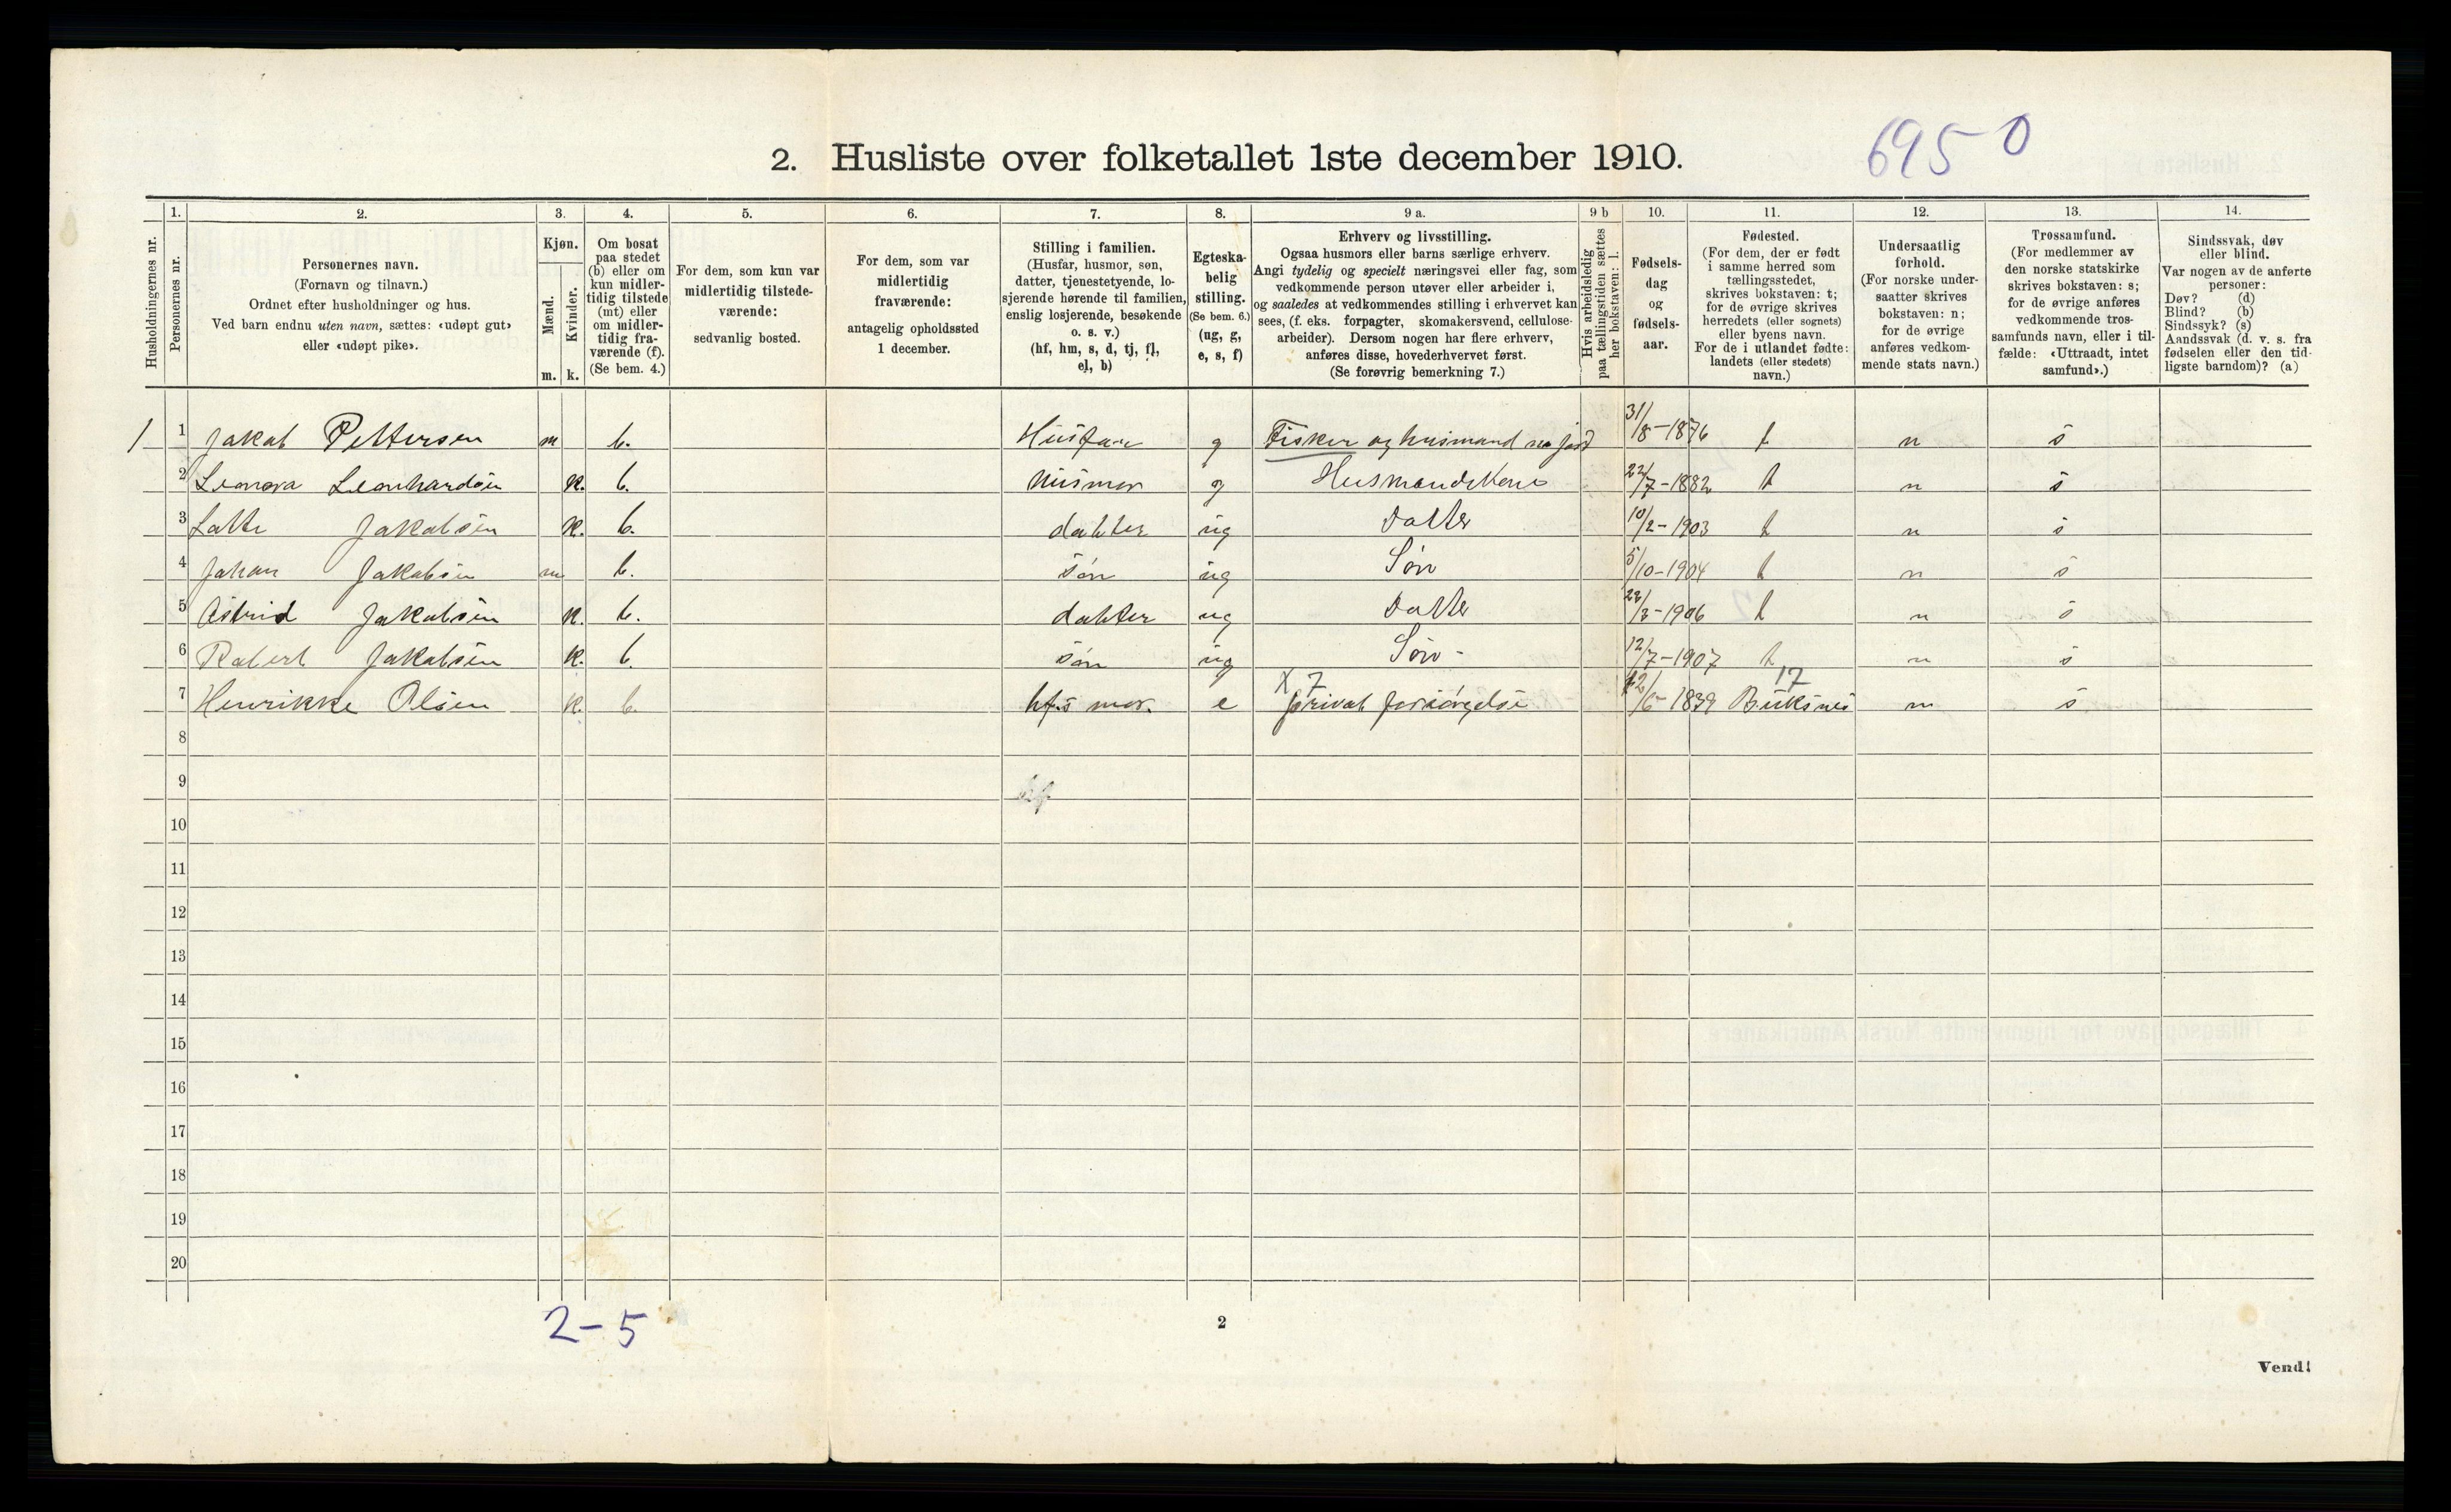 2. Husliste over folketallet 1ste december 1910.
6950
Husholdningernes nr.
1.
Personernes nr.
2.
Personernes navn.
(Fornavn og tilnavn.)
Ordnet efter husholdninger og hus.
Ved barn endnu uten navn, sættes: «udøpt gut»
eller «udøpt pike».
3.
Kjøn.
Mænd.
Kvinder.
m. k.
4.
Om bosat
paa stedet
(b) eller om
kun midler-
tidig tilstede
(mt) eller
om midler-
tidig fra-
værende (f).
(Se bem. 4.)
5.
For dem, som kun var
midlertidig tilstede-
værende:
sedvanlig bosted.
6.
For dem, som var
midlertidig
fraværende:
antagelig opholdssted
1 december.
7.
Stilling i familien.
(Husfar, husmor, søn,
datter, tjenestetyende, lo-
sjerende hørende til familien,
enslig losjerende, besøkende
o. s. v.)
(hf, hm, s, d, tj, fl,
el, b)
8.
Egteska-
belig
stilling.
(Se bem. 6.)
(ug, g,
e, s, f)
9 a.
Erhverv og livsstilling.
Ogsaa husmors eller barns særlige erhverv.
Angi tydelig og specielt næringsvei eller fag, som
vedkommende person utøver eller arbeider i,
og saaledes at vedkommendes stilling i erhvervet kan
sees, (f. eks. forpagter, skomakersvend, cellulose-
arbeider). Dersom nogen har flere erhverv,
anføres disse, hovederhvervet først.
(Se forøvrig bemerkning 7.)
9 b
Hvis arbeidsledig
paa tællingstiden sættes
her bokstaven: l.
10.
Fødsels-
dag
og
fødsels-
aar.
11.
Fødested.
(For dem, der er født
i samme herred som
tællingsstedet,
skrives bokstaven: t;
for de øvrige skrives
herredets (eller sognets)
eller byens navn.
For de i utlandet fødte:
landets (eller stedets)
navn.)
12.
Undersaatlig
forhold.
(For norske under-
saatter skrives
bokstaven: n;
for de øvrige
anføres vedkom-
mende stats navn.)
13.
Trossamfund.
(For medlemmer av
den norske statskirke
skrives bokstaven: s;
for de øvrige anføres
vedkommende tros-
samfunds navn, eller i til-
fælde: «Uttraadt, intet
samfund».)
14.
Sindssvak, døv
eller blind.
Var nogen av de anførte
personer:
Døv? (d)
Blind? (b)
Sindssyk? (s)
Aandssvak (d. v. s. fra
fødselen eller den tid-
ligste barndom)? (a)
1 1 Jakob Pettersen m b. Husfar g Fisker og husmand m jord 31/8-1876 t n s
2 Leonora Leonhardsen k. b. Husmor g Husmandskone 22/7-1882 t n s
3 Lotte Jakobsen k. b. dahter ug Datter 10/2-1903 t n s
4 Johan Jakobsen m b. søn ug Søn 5/10-1904 t n s
5 Astrid Jakobsen k. b. dahter ug Datter 23/3-1906 t n s
6 Robert Jakobsen k. b. søn ug Søn - 12/7-1907 t n s
X 7 17
7 Henrikke Olsen k. b. hf.s mor. e privat forsørgelse 12/6-1839 Buksnes n s
8
9 hf.
10
11
12
13
14
15
16
17
18
19
20
2-5
2
Vend!